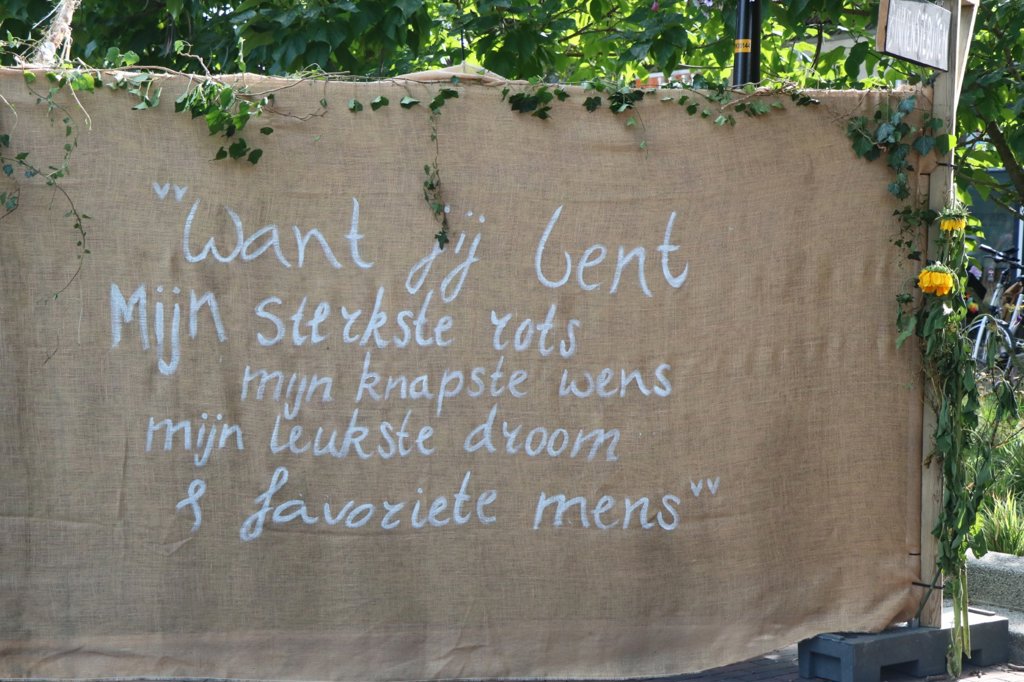 "Want jij bent
Mijn sterkste rots
mijn knapste wens
mijn leukste droom
& favoriete mens"